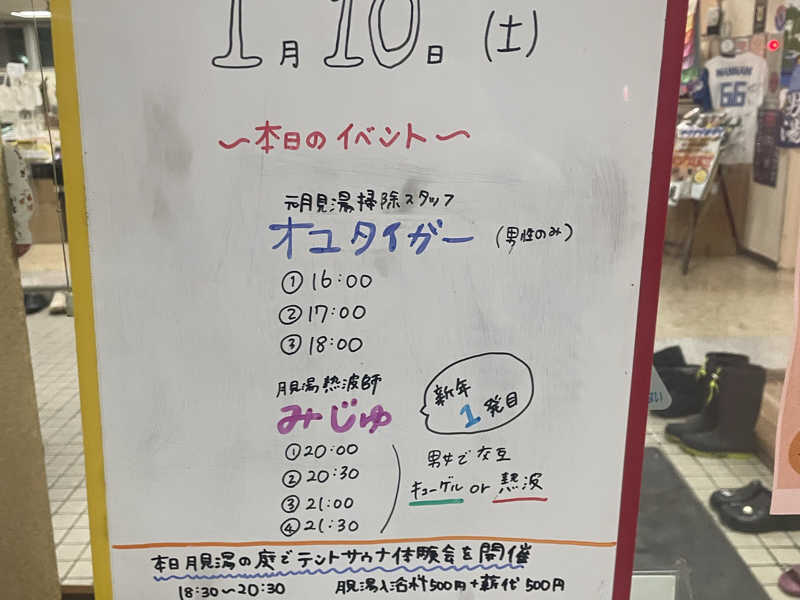 1月10日 (土)
〜本日のイベント〜
元月見湯掃除スタッフ
オユタイガー (男性のみ)
①16:00
②17:00
③18:00
月見湯熱波師
みじゅ
新年
1発目
①20:00
②20:30
③21:00
④21:30
男女で交互
キューゲル or 熱波
本日月見湯の庭でテントサウナ体験会を開催
18:30〜20:30 月見湯入浴料500円+薪代500円
66